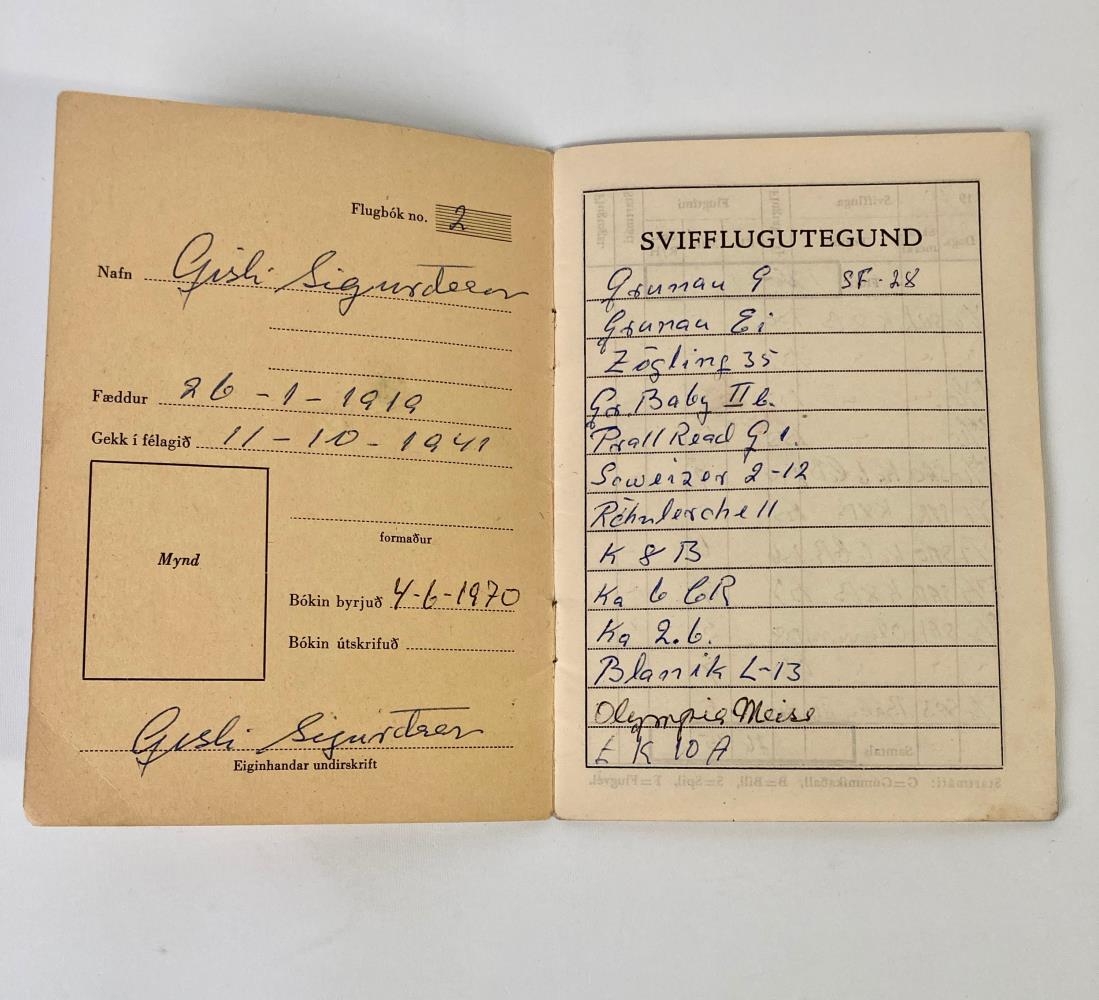 Flugbók no. 2
Nafn Gisli Sigurðsson
Fæddur 26-1-1919
Gekk í félagið 11-10-1941
formaður
Mynd
Bókin byrjuð 4-6-1970
Bókin útskrifuð
Gisli Sigurðsson
Eiginhandar undirskrift
SVIFFLUGUTEGUND
Grunau 9 SF-28
Grunau Ei
Zögling 35
Gr. Baby II b.
Prall Read G 1.
Scweizer 2-12
Röhnlerche II
K 8 B
Ka 6 CR
Ka 2.b.
Blanik L-13
Olympia Meise
K 10 A
Samtals
Startmáti: G=Gúmmíkaðall, B=Bíll, S=Spil, F=Flugvél.